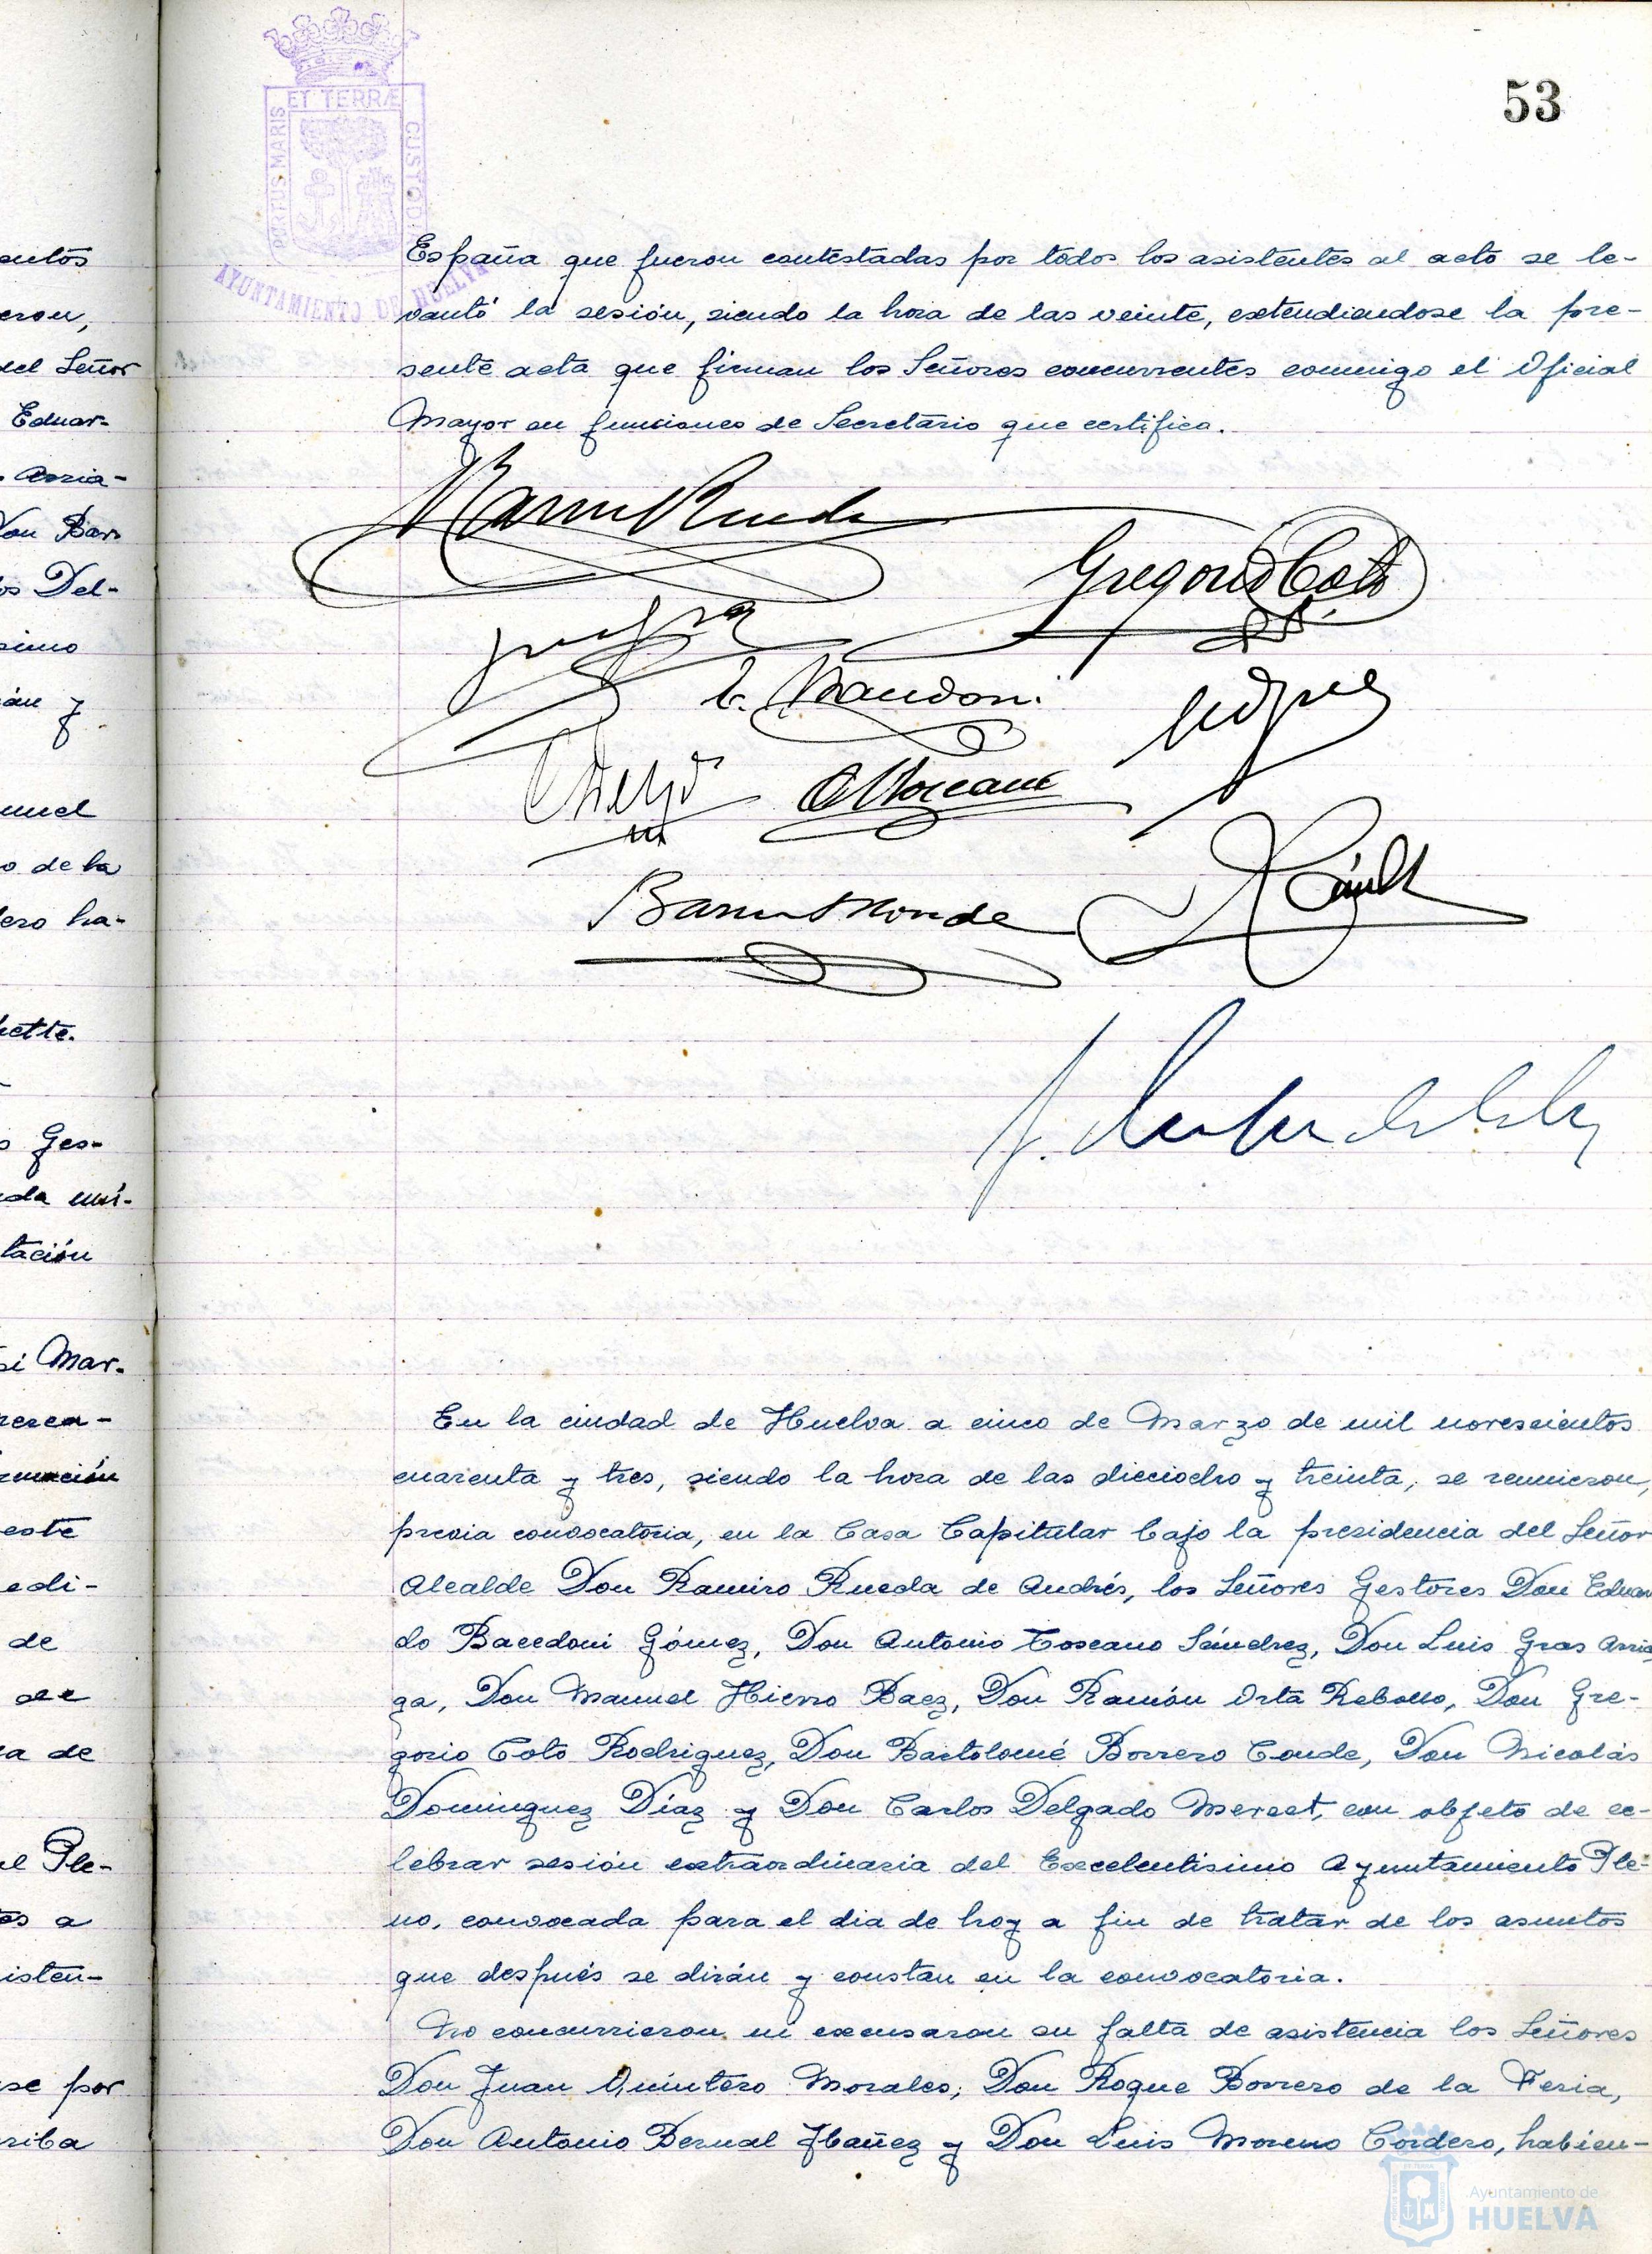 53
PORTUS MARIS ET TERRÆ CUSTOD
AYUNTAMIENTO DE HUELVA
España que fueron contestadas por todos los asistentes al acto se le-
vantó la sesión, siendo la hora de las veinte, extendiendose la pre-
sente acta que firman los Señores concurrentes conmigo el Oficial
Mayor en funciones de Secretario que certifico.
Gregorio Coto
En la ciudad de Huelva a cinco de Marzo de mil novescientos
cuarenta y tres, siendo la hora de las dieciocho y treinta, se reunieron,
previa convocatoria, en la Casa Capitular bajo la presidencia del Señor
Alcalde Don Ramiro Rueda de Andrés, los Señores Gestores Don Eduar
do Bacedoni Gómez, Don Antonio Toscano Sánchez, Don Luis Gras Arria
ga, Don Manuel Hierro Baez, Don Ramón Orta Rebollo, Don Gre-
gorio Coto Rodriguez, Don Bartolomé Borrero Conde, Don Nicolás
Dominguez Díaz y Don Carlos Delgado Mereet, con objeto de ce-
lebrar sesión extraordinaria del Excelentisimo Ayuntamiento Ple-
no, convocada para el dia de hoy a fin de tratar de los asuntos
que después se dirán y constan en la convocatoria.
No concurrieron ni excusaron su falta de asistencia los Señores
Don Juan Quintero Morales, Don Roque Borrero de la Feria,
Don Antonio Bernal Ibañez y Don Luis Moreno Cordero, habien-
Ayuntamiento de
HUELVA
antos
eron,
del Señor
Eduar-
Arria-
Don Bar
os Del-
simo
án y
nuel
o de la
ero ha-
Ges-
tación
si Mar-
este
edi-
de
a de
el Ple-
os a
isten-
se por
riba